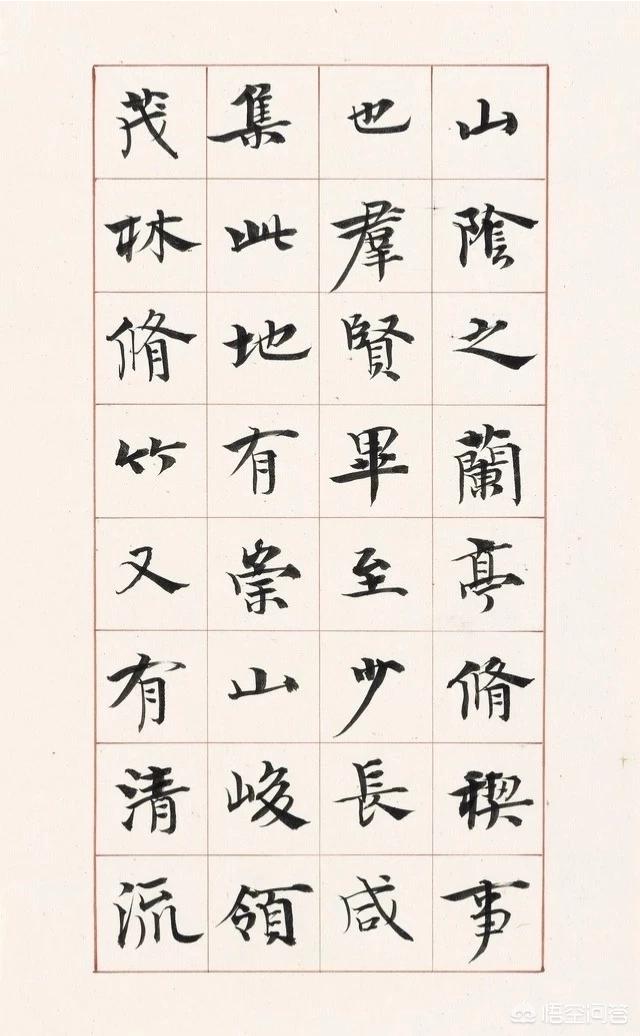 山陰之蘭亭脩稧事
也羣賢畢至少長咸
集此地有崇山峻領
茂林脩竹又有清流
悟空问答